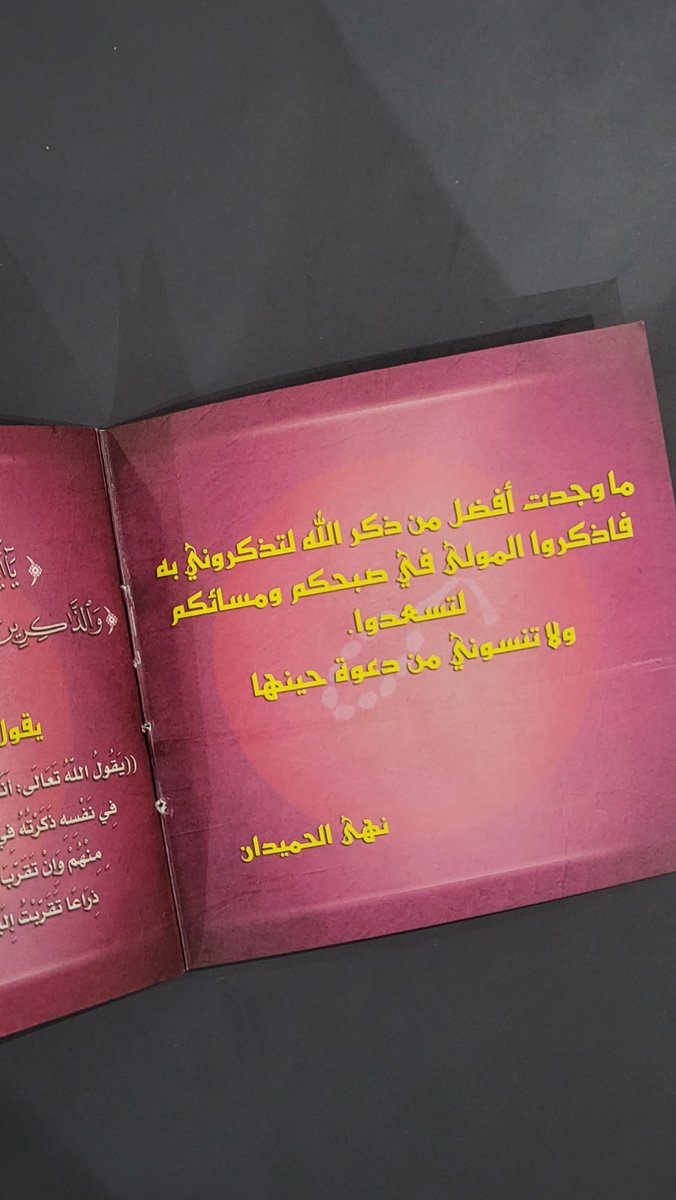 ما وجدت أفضل من ذكر الله لتذكروني به
فاذكروا المولى في صبحكم ومسائكم
لتسعدوا.
ولا تنسوني من دعوة حينها
نهى الحميدان
﴿
﴿وَالذَّاكِرِينَ
يقول
((يَقُولُ اللَّهُ تَعَالَى: أَنَا
فِي نَفْسِهِ ذَكَرْتُهُ فِي
مِنْهُمْ وَإِنْ تَقَرَّبَ
ذِرَاعًا تَقَرَّبْتُ